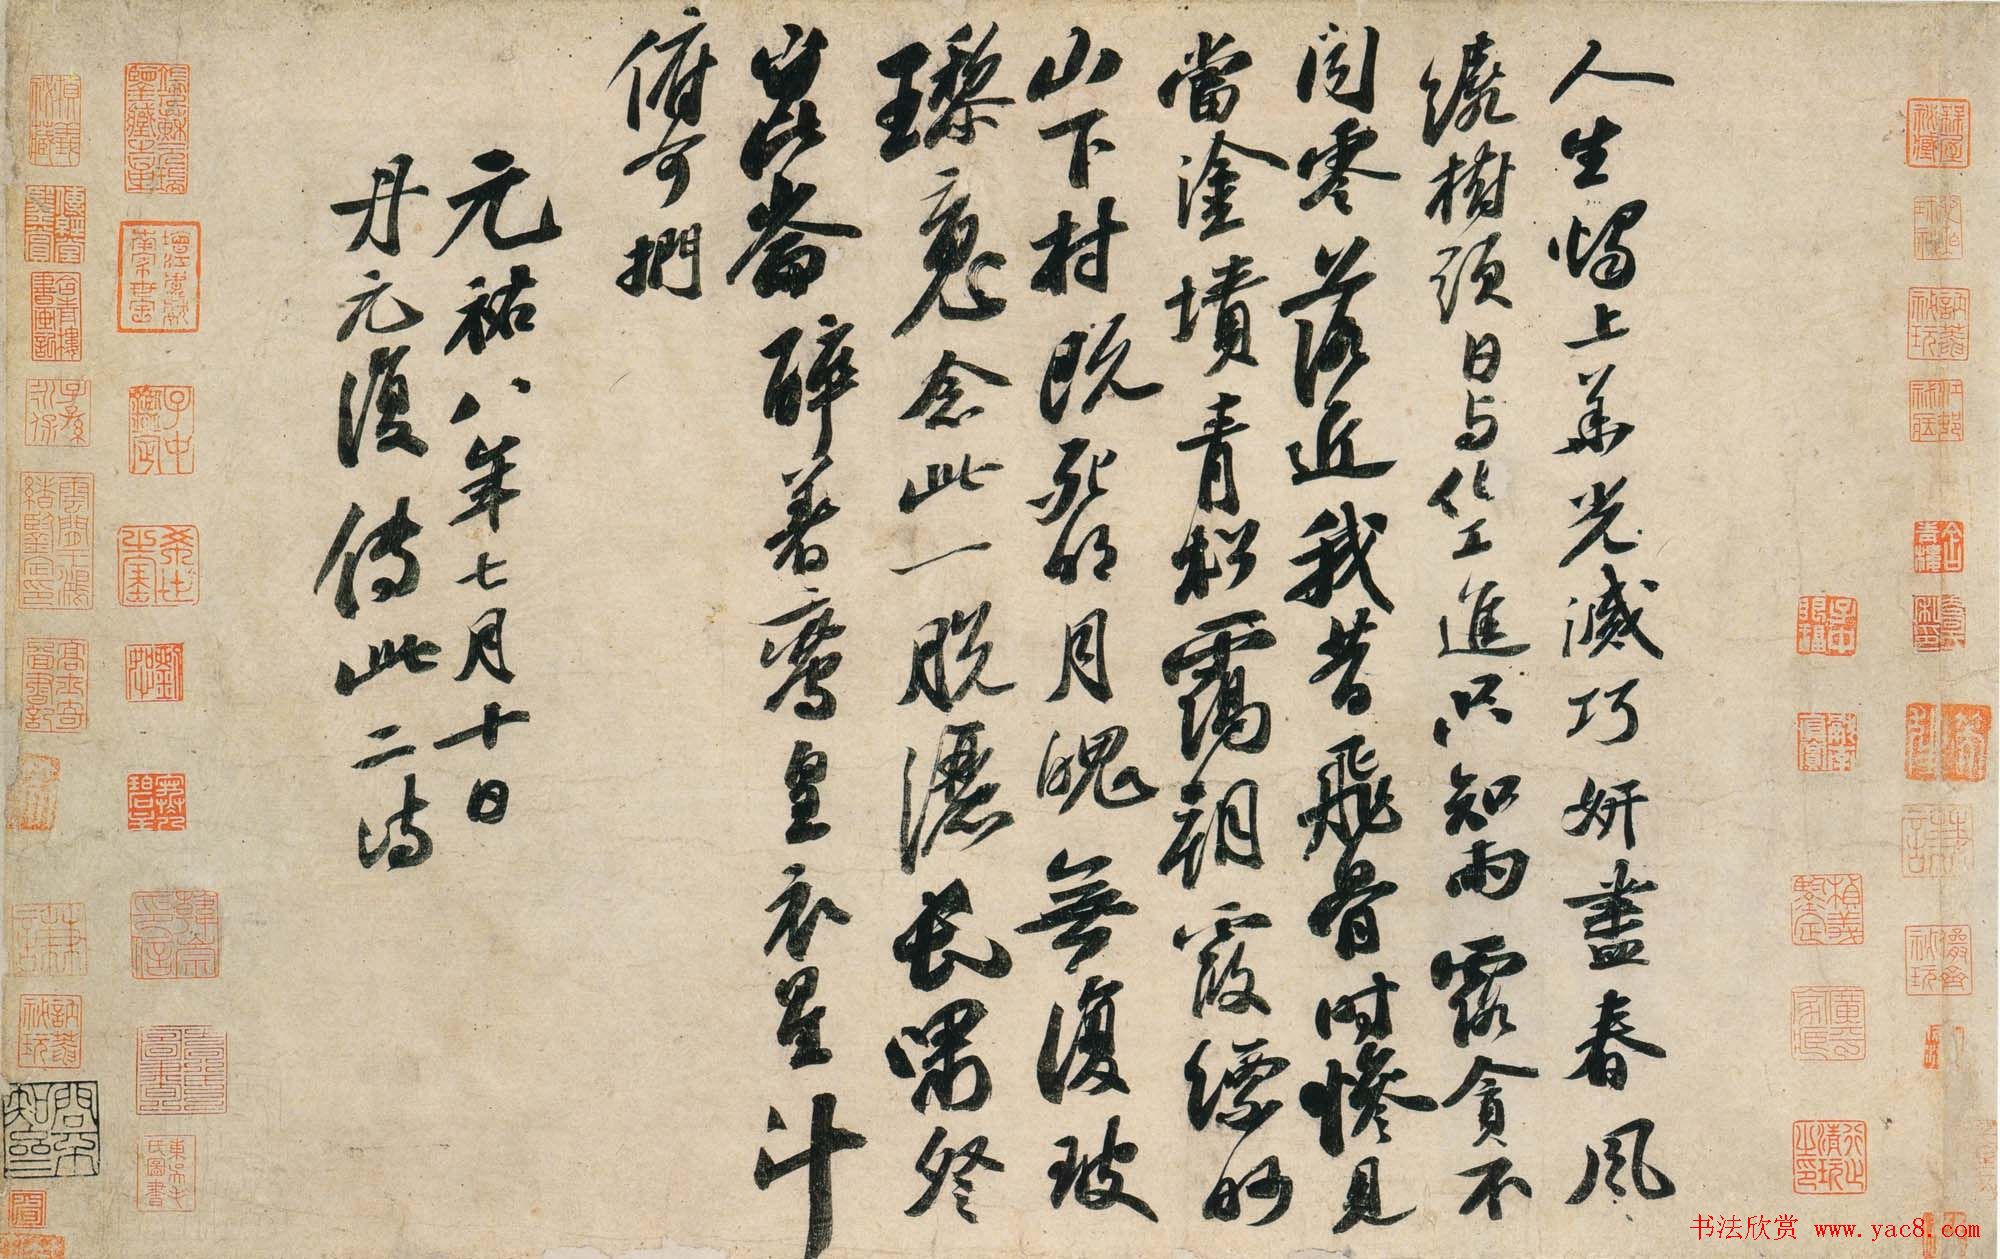 人生燭上華光滅巧妍盡春風
繞樹頭日与化工進只知雨露貪不
聞零落近我昔飛骨時慘見
當塗墳青松靄朝霞縹眇
山下村既死明月魄無復玻
瓈魂念此一脫灑長嘯登
崑崙醉著鸞皇衣星斗
俯可捫
元祐八年七月十日
丹元復傳此二詩
书法欣赏 www.yac8.com